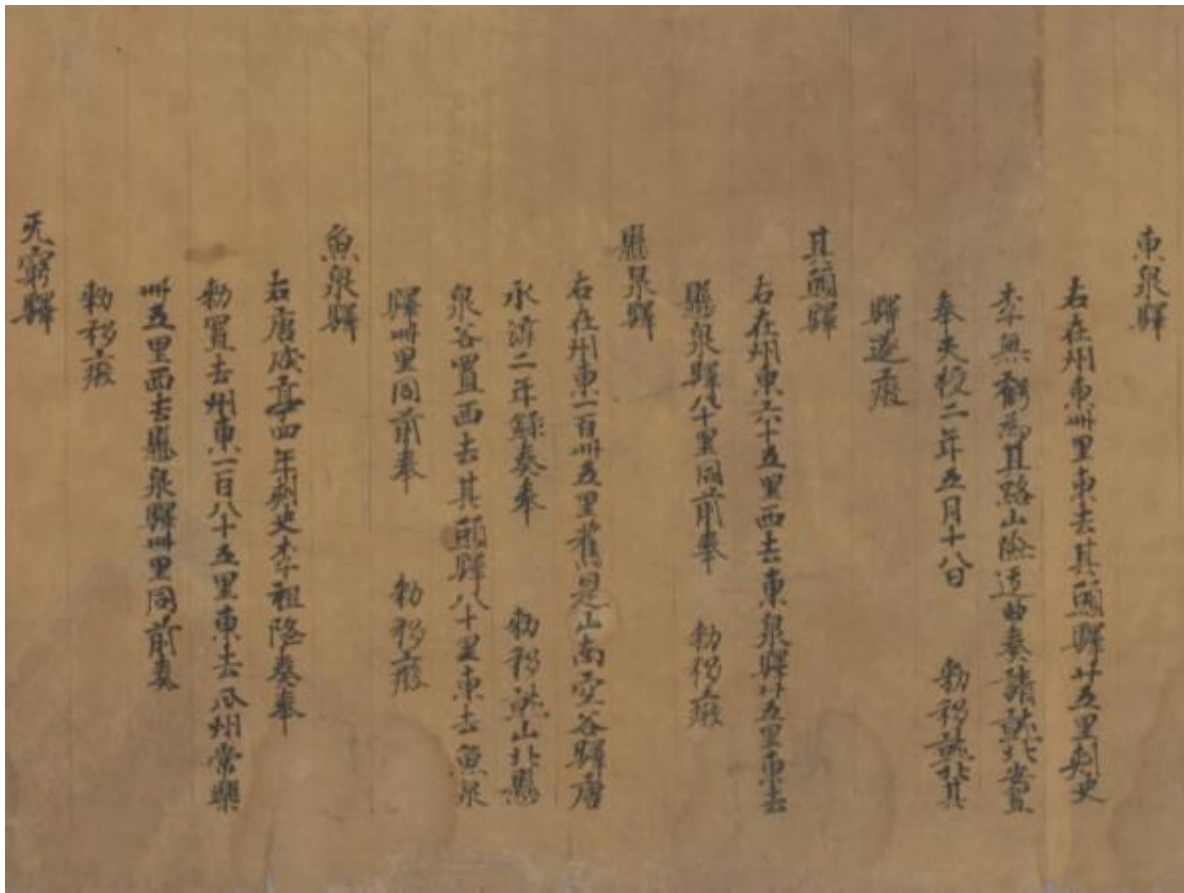 東泉驛
右在州東卌里東去其頭驛廿五里刾史
李無虧為且路山險迂曲奏請就北置
奉天授二年五月十八日　勑移就北其
驛遂廢
其頭驛
右在州東六十五里西去東泉驛廿五里東去
懸泉驛八十里同前奉　勑移廢
懸泉驛
右在州東一百卌五里舊是山南空谷驛唐
永淳二年錄奏奉　勑移就山北懸
泉谷置西去其頭驛八十里東去魚泉
驛卌里同前奉　勑移廢
魚泉驛
右唐咸亨四年刾史李祖隆奏奉
勑置去州東一百八十五里東去瓜州常樂
卌五里西去懸泉驛卌里同前奏
勑移廢
无窮驛